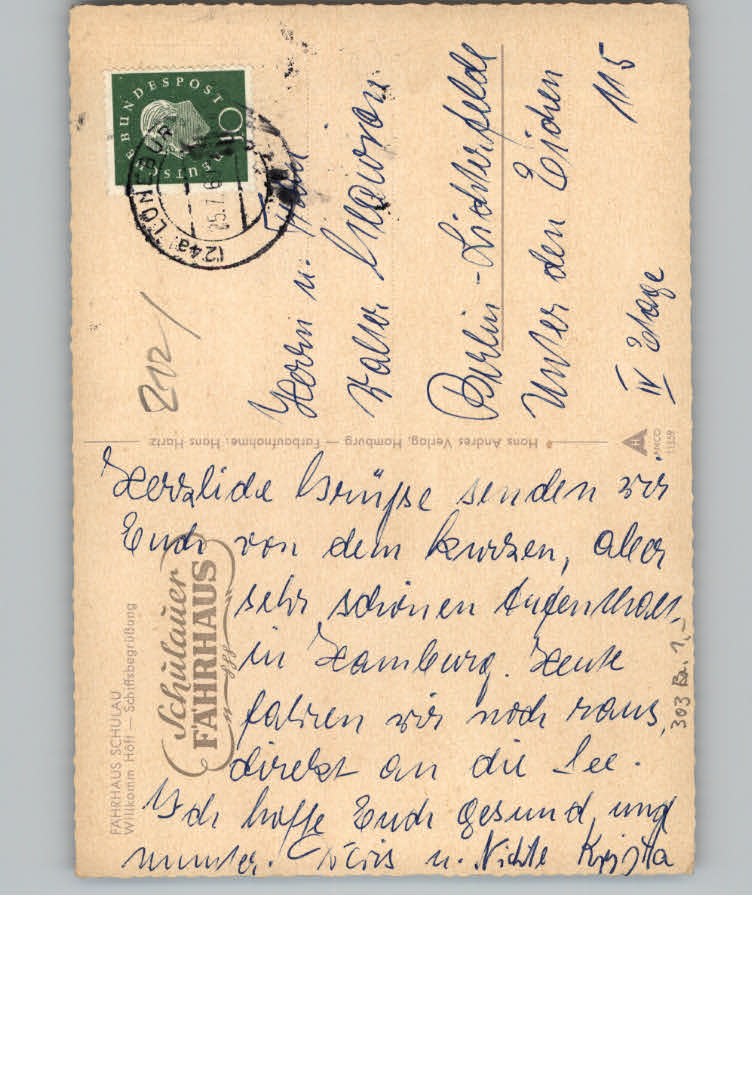 FÄHRHAUS SCHULAU
Willkomm Höft — Schiffsbegrüßung
Schulauer
FÄHRHAUS
Herzliche Grüße senden wir
Euch von dem kurzen, aber
sehr schönen Aufenthalt
in Hamburg. Heute
fahren wir noch raus,
direkt an die See.
Ich hoffe Euch gesund und
munter. u. Nichte Krista
Hans Andres Verlag, Hamburg — Farbaufnahme: Hans Hartz
ANCO
11359
DEUTSCHE BUNDESPOST
10
(24a) LÜNEBURG
25.7.6
212/
Herrn u.
Walter
Berlin-Lichterfelde
Unter den Eichen
115
IV Etage
303 Ba. 1,-